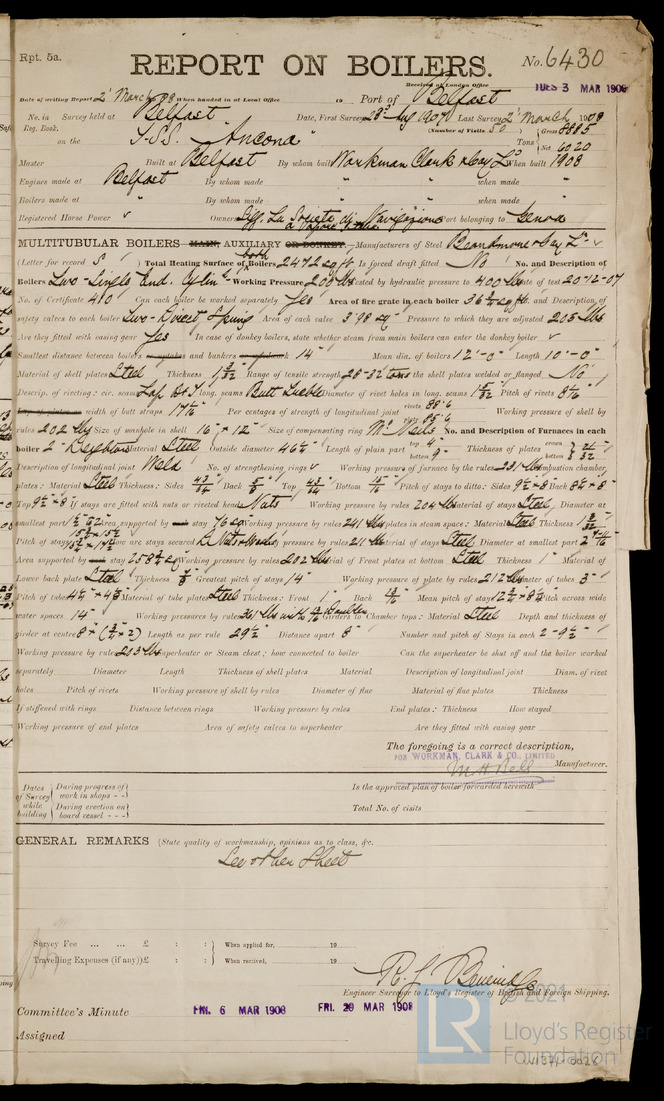 Rpt. 5a.
REPORT ON BOILERS.
No. 6430
Received at London Office
TUES 3 MAR 1908
Date of writing Report 2' March 08 When handed in at Local Office 19 Port of Belfast
No. in Survey held at Belfast Date, First Survey 28th Aug 1907 Last Survey 2' March 1908
Reg. Book. (Number of Visits 50)
on the T.S.S. "Ancona" Tons { Gross 8885
Net 6020
Master Built at Belfast By whom built Workman Clark & Coy Ld When built 1908
Engines made at Belfast By whom made " when made "
Boilers made at " By whom made " when made "
Registered Horse Power Owners Societa di Navigazione Port belonging to Genoa
a Vapore
MULTITUBULAR BOILERS MAIN, AUXILIARY OR DONKEY.—Manufacturers of Steel Beardmore & Coy Ld
(Letter for record S) Total Heating Surface of both Boilers 2472 sq ft Is forced draft fitted No No. and Description of
Boilers Two Single End. Cylin Working Pressure 200 lbs Tested by hydraulic pressure to 400 lbs Date of test 20-12-07
No. of Certificate 410 Can each boiler be worked separately Yes Area of fire grate in each boiler 36 sq ft No. and Description of
safety valves to each boiler Two-Direct Spring Area of each valve 3.98 sq" Pressure to which they are adjusted 205 lbs
Are they fitted with easing gear Yes In case of donkey boilers, state whether steam from main boilers can enter the donkey boiler
Smallest distance between boilers or uptakes and bunkers or woodwork 14" Mean dia. of boilers 12'-0" Length 10'-0"
Material of shell plates Steel Thickness 1 3/32 Range of tensile strength 28-32 tons Are the shell plates welded or flanged No
Descrip. of riveting: cir. seams Lap long. seams Butt Treble Diameter of rivet holes in long. seams 1 5/32 Pitch of rivets 8 1/16
Lap of plates or width of butt straps 17 1/16 Per centages of strength of longitudinal joint rivets 88.6
plate 85.6 Working pressure of shell by
rules 202 lbs Size of manhole in shell 16" × 12" Size of compensating ring McNeils No. and Description of Furnaces in each
boiler 2 Deightons Material Steel Outside diameter 46 1/2 Length of plain part top 4"
bottom 9" Thickness of plates crown
bottom } 21/32
Description of longitudinal joint Weld No. of strengthening rings Working pressure of furnace by the rules 231 lbs Combustion chamber
plates: Material Steel Thickness: Sides 43/64 Back 5/8 Top 43/64 Bottom 15/16 Pitch of stays to ditto: Sides 9 1/2 × 8 Back 8 3/4 × 8
Top 9 1/2 × 8 If stays are fitted with nuts or riveted heads Nuts Working pressure by rules 204 lbs Material of stays Steel Diameter at
smallest part Area supported by each stay 76 Working pressure by rules 241 lbs End plates in steam space: Material Steel Thickness
Pitch of stays How are stays secured D. Nuts & Washers Working pressure by rules 211 Material of stays Steel Diameter at smallest part
Area supported by each stay Working pressure by rules 202 lbs Material of Front plates at bottom Steel Thickness 1" Material of
Lower back plate Steel Thickness 7/8 Greatest pitch of stays 14" Working pressure of plate by rules 212 lbs Diameter of tubes 3"
Pitch of tubes 4 1/4 × 4 3/8 Material of tube plates Steel Thickness: Front 1" Back 13/16 Mean pitch of stays Pitch across wide
water spaces 14" Working pressures by rules 261 lbs with Doublers Girders to Chamber tops: Material Steel Depth and thickness of
girder at centre 8" × (3/4 × 2) Length as per rule 29 1/2 Distance apart 8" Number and pitch of Stays in each 2 - 9 1/2"
Working pressure by rules 203 lbs Superheater or Steam chest; how connected to boiler Can the superheater be shut off and the boiler worked
separately Diameter Length Thickness of shell plates Material Description of longitudinal joint Diam. of rivet
holes Pitch of rivets Working pressure of shell by rules Diameter of flue Material of flue plates Thickness
If stiffened with rings Distance between rings Working pressure by rules End plates: Thickness How stayed
Working pressure of end plates Area of safety valves to superheater Are they fitted with easing gear
The foregoing is a correct description,
FOR WORKMAN, CLARK & CO., LIMITED
M H Bell Manufacturer.
Dates of Survey while building { During progress of work in shops - - } Is the approved plan of boiler forwarded herewith
{ During erection on board vessel - - - } Total No. of visits
GENERAL REMARKS (State quality of workmanship, opinions as to class, &c.
See other Sheet
Survey Fee ... ... £ : : } When applied for, 19
Travelling Expenses (if any) £ : : } When received, 19
Engineer Surveyor to Lloyd's Register of British and Foreign Shipping.
Committee's Minute FRI. 6 MAR 1908 FRI. 20 MAR 1908
Assigned
© 2021
LR
Lloyd's Register
Foundation
W1371-0026